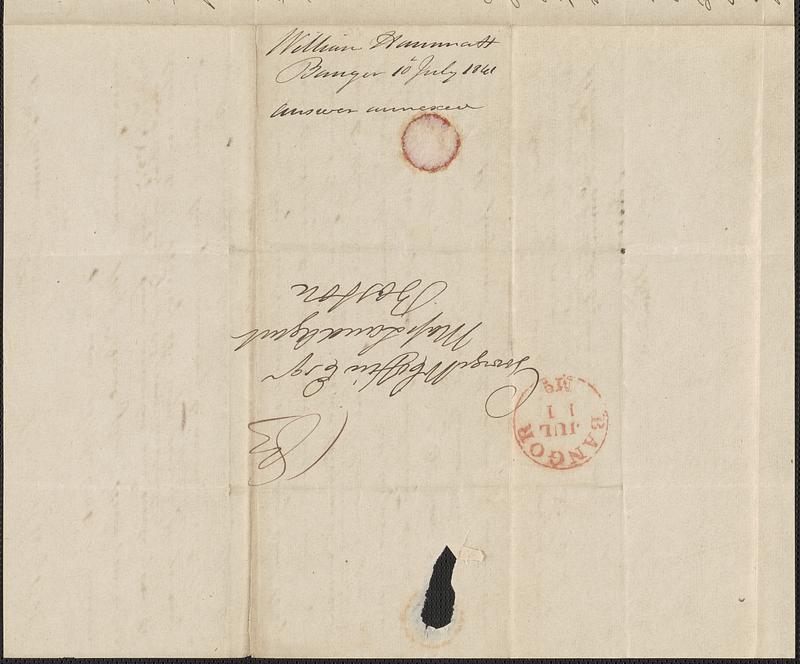 William Hammatt
Bangor 10 July 1841
answer annexed
George W Coffin Esqr
Mass Land Agent
Boston
BANGOR
JUL
11
Me